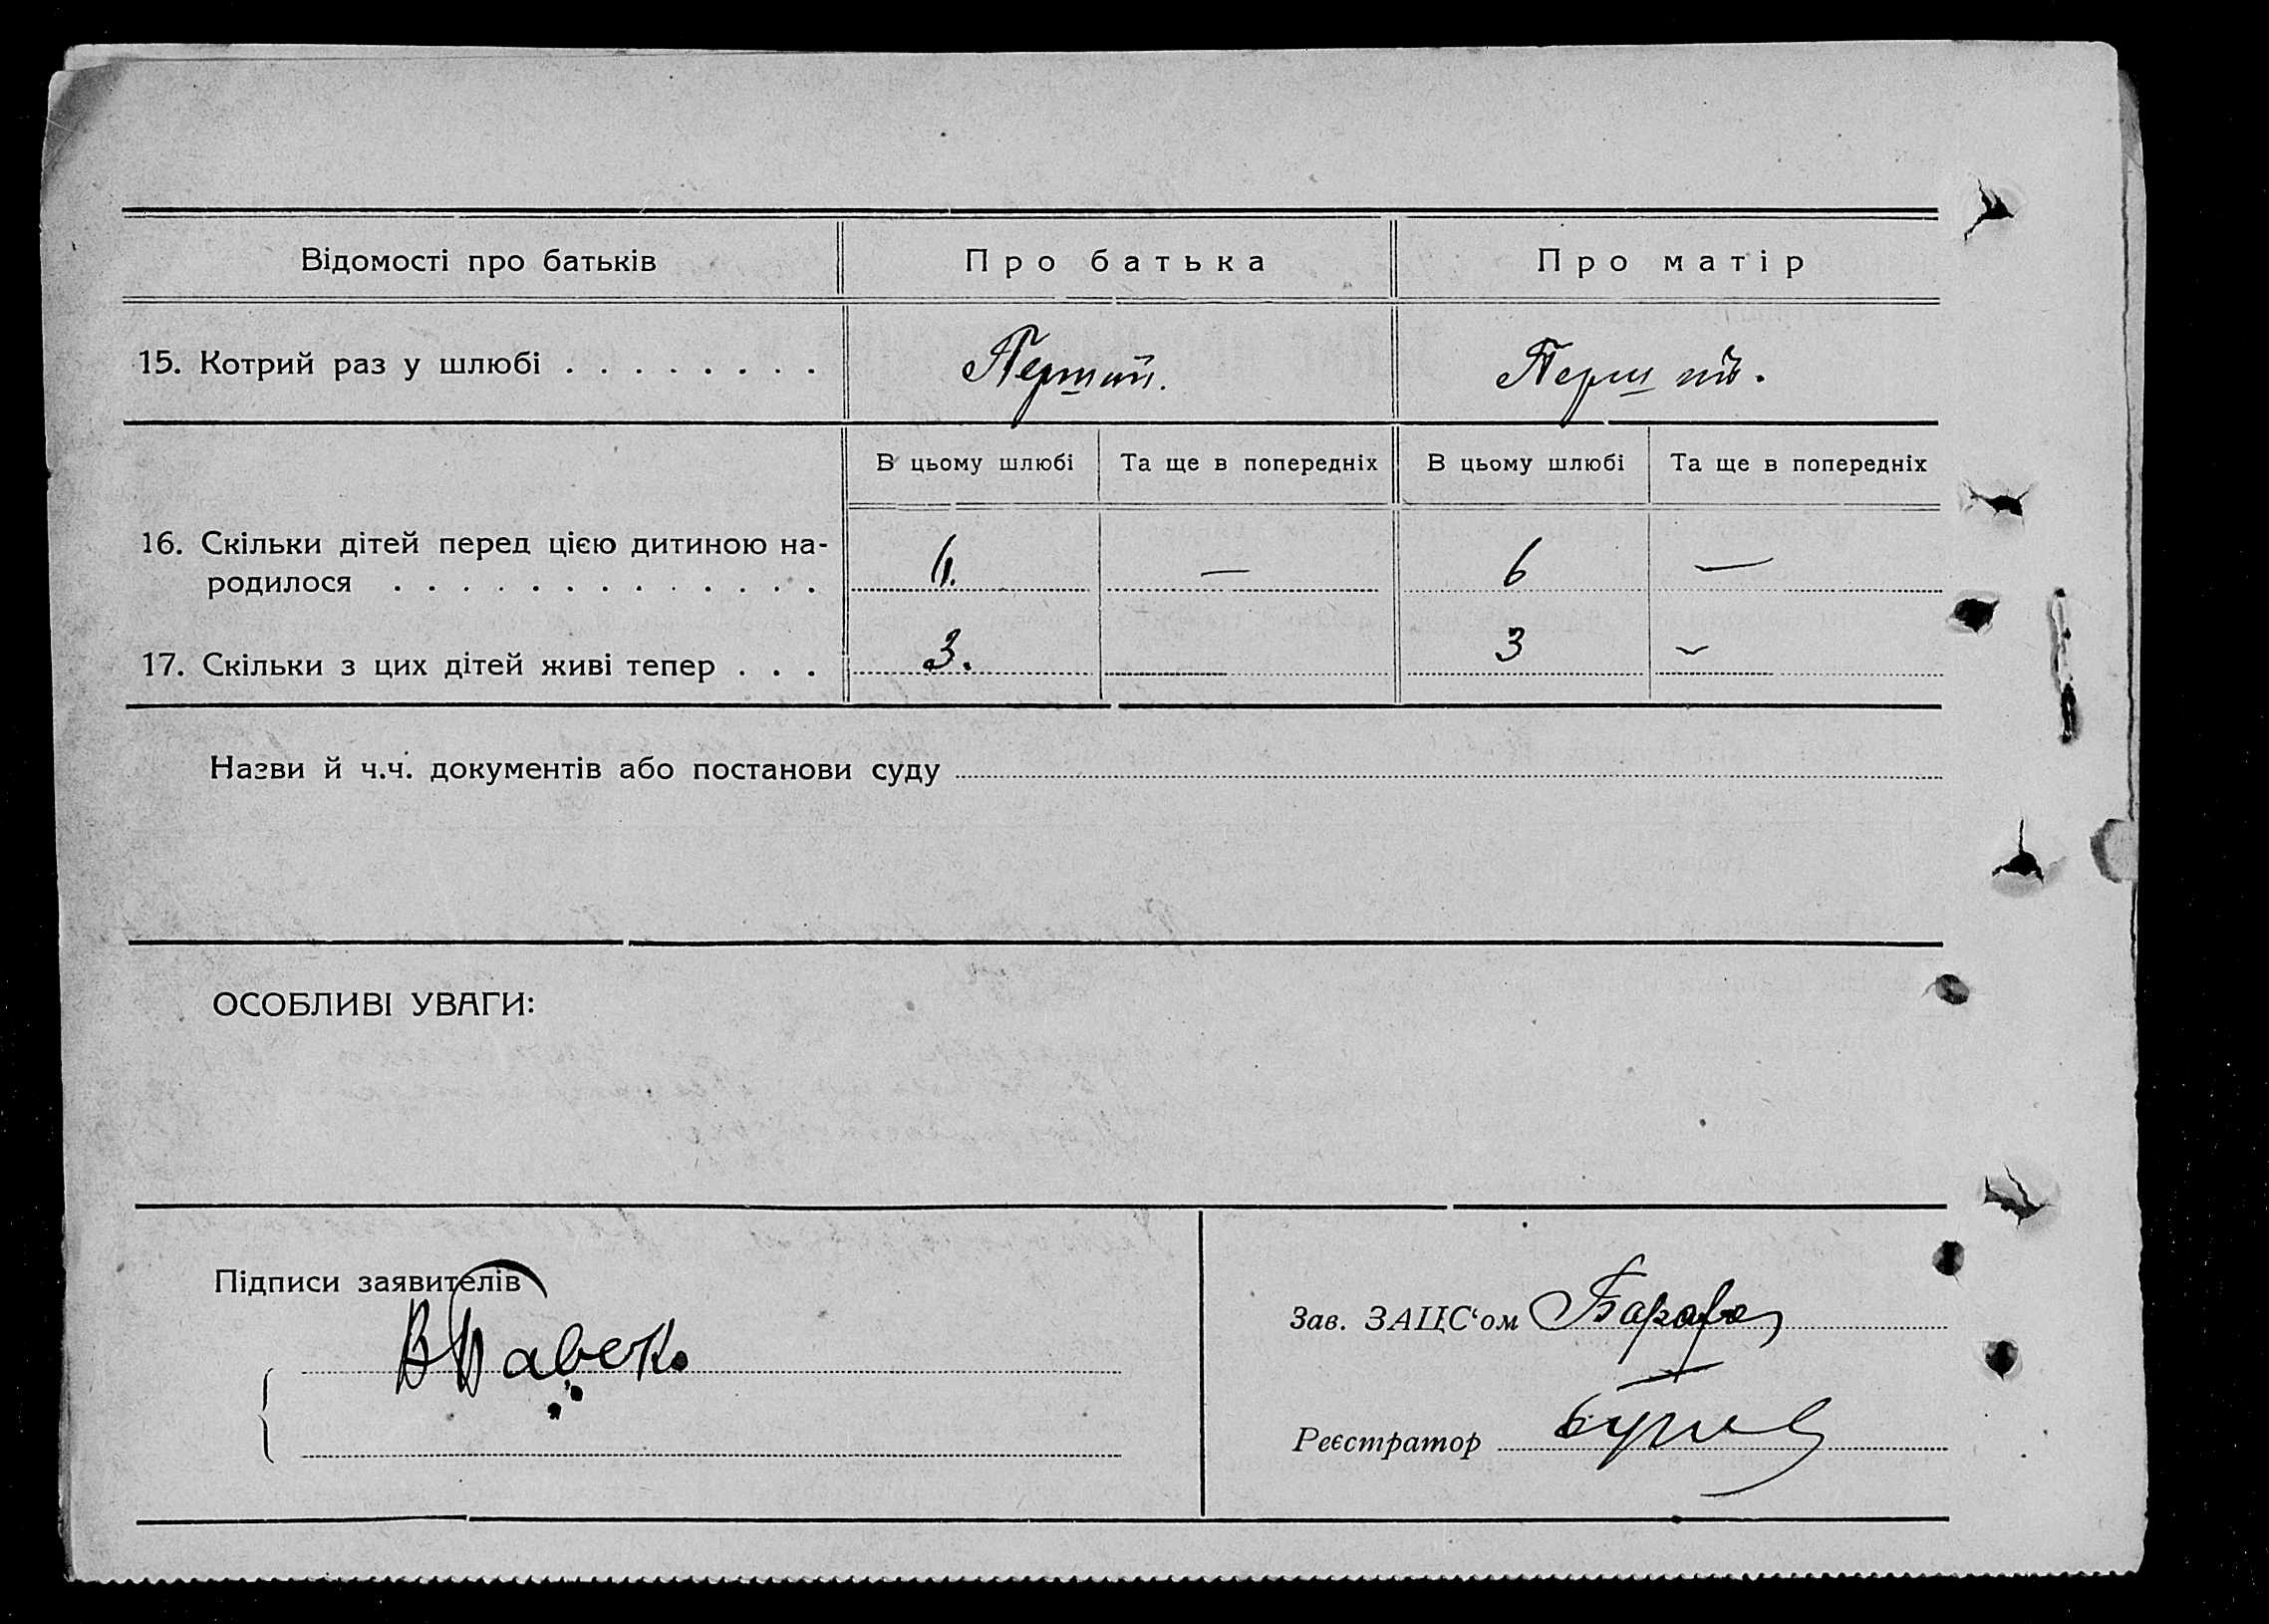 Відомості про батьків Про батька Про матір
15. Котрий раз у шлюбі . . . . . . . . Перший. Перший.
В цьому шлюбі Та ще в попередніх В цьому шлюбі Та ще в попередніх
16. Скільки дітей перед цією дитиною на-
родилося . . . . . . . . . . . . . 6. — 6 —
17. Скільки з цих дітей живі тепер . . . 3. 3 -
Назви й ч.ч. документів або постанови суду
ОСОБЛИВІ УВАГИ:
Підписи заявителів
Зав. ЗАЦС‘ом
Реєстратор